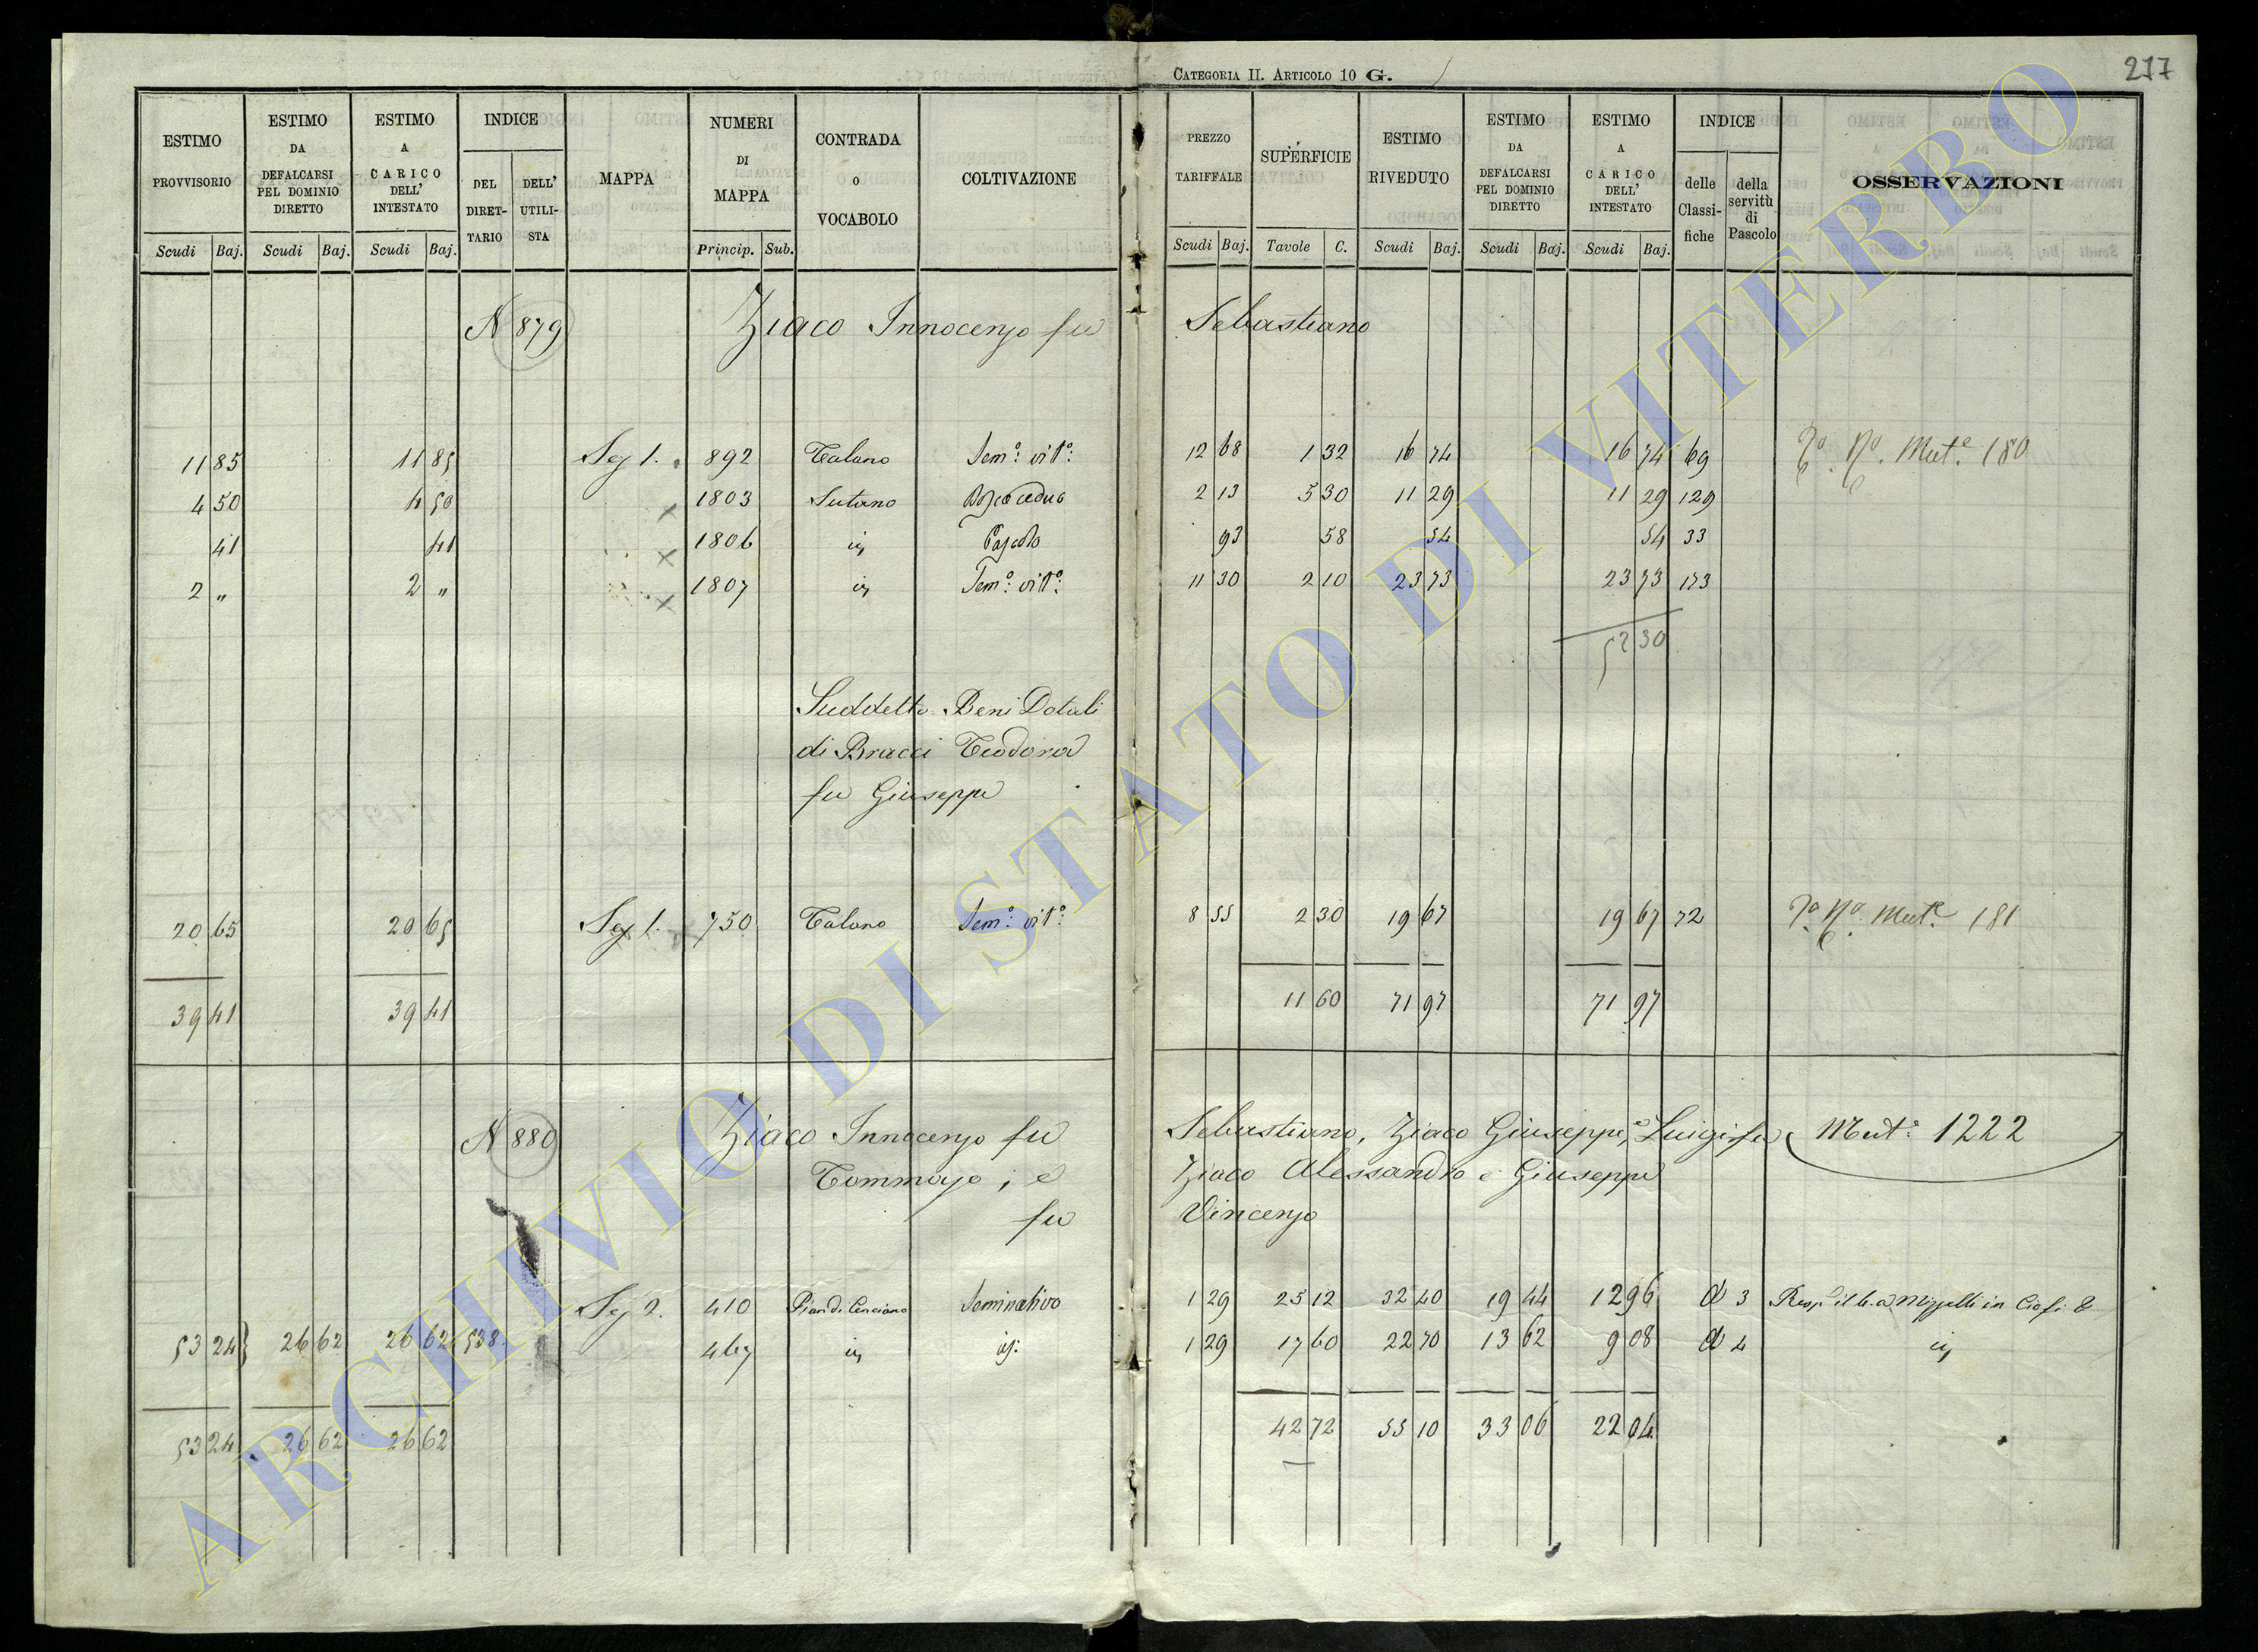 CATEGORIA II. ARTICOLO 10 G.
217
ESTIMO PROVVISORIO Scudi Baj.
ESTIMO DA DEFALCARSI PEL DOMINIO DIRETTO Scudi Baj.
ESTIMO A CARICO DELL' INTESTATO Scudi Baj.
INDICE DEL DIRET-TARIO DELL' UTILI-STA
MAPPA
NUMERI DI MAPPA Princip. Sub.
CONTRADA O VOCABOLO
COLTIVAZIONE
PREZZO TARIFFALE Scudi Baj.
SUPERFICIE Tavole C.
ESTIMO RIVEDUTO Scudi Baj.
ESTIMO DA DEFALCARSI PEL DOMINIO DIRETTO Scudi Baj.
ESTIMO A CARICO DELL' INTESTATO Scudi Baj.
INDICE delle Classi-fiche della servitù di Pascolo
OSSERVAZIONI
N 879 Ziaco Innocenzo fu Sebastiano
11 85 11 85 Sez 1. 892 Talano Sem.o vit.o 12 68 1 32 16 74 16 74 69 Mut.e 180
4 50 4 50 1803 Sutano Bosco ceduo 2 13 5 30 11 29 11 29 129
41 41 1806 id Pascolo 93 58 54 54 33
2 " 2 " 1807 id Sem.o vit.o 11 30 2 10 23 73 23 73 173
52 30
Suddetto Beni Dotali
di Bracci Teodora
fu Giuseppe
20 65 20 65 Sez 1. 750 Talano Sem.o vit.o 8 55 2 30 19 67 19 67 72 Mut.e 181
39 41 39 41 11 60 71 97 71 97
N 880 Ziaco Innocenzo fu Sebastiano, Ziaco Giuseppe, e Luigi fu Mut.e 1222
Tommaso; e Ziaco Alessandro e Giuseppe
fu Vincenzo
Sez 2. 410 Pian di Cenciano Seminativo 1 29 25 12 32 40 19 44 12 96 d 3
53 24 } 26 62 26 62 538 467 id id: 1 29 17 60 22 70 13 62 9 08 d 4 id
53 24 26 62 26 62 42 72 55 10 33 06 22 04
ARCHIVIO DI STATO DI VITERBO